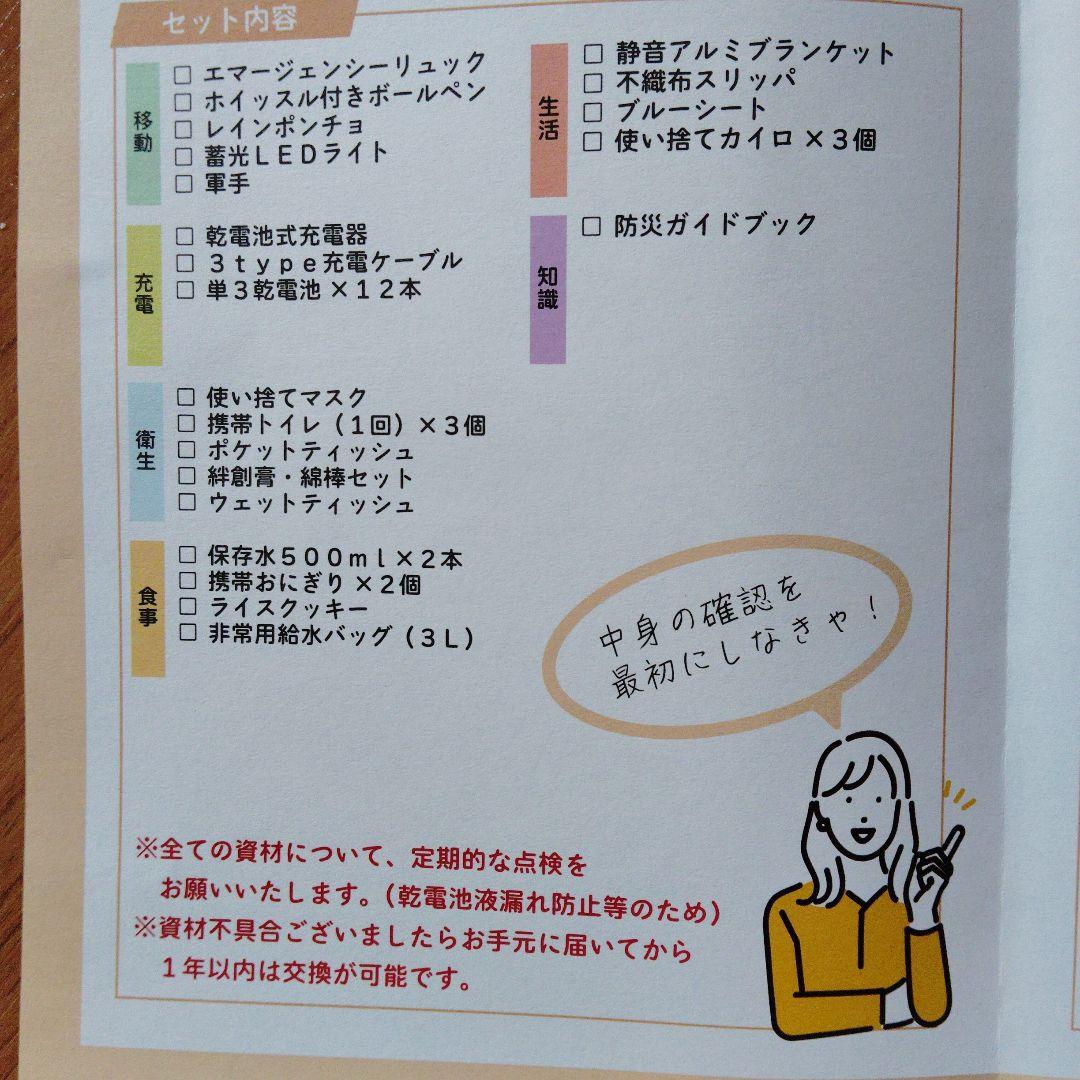 セット内容
移動
□ エマージェンシーリュック
□ ホイッスル付きボールペン
□ レインポンチョ
□ 蓄光ＬＥＤライト
□ 軍手
充電
□ 乾電池式充電器
□ ３ｔｙｐｅ充電ケーブル
□ 単３乾電池×１２本
衛生
□ 使い捨てマスク
□ 携帯トイレ（１回）×３個
□ ポケットティッシュ
□ 絆創膏・綿棒セット
□ ウェットティッシュ
食事
□ 保存水５００ｍｌ×２本
□ 携帯おにぎり×２個
□ ライスクッキー
□ 非常用給水バッグ（３Ｌ）
生活
□ 静音アルミブランケット
□ 不織布スリッパ
□ ブルーシート
□ 使い捨てカイロ×３個
知識
□ 防災ガイドブック
中身の確認を
最初にしなきゃ！
※全ての資材について、定期的な点検を
お願いいたします。（乾電池液漏れ防止等のため）
※資材不具合ございましたらお手元に届いてから
１年以内は交換が可能です。